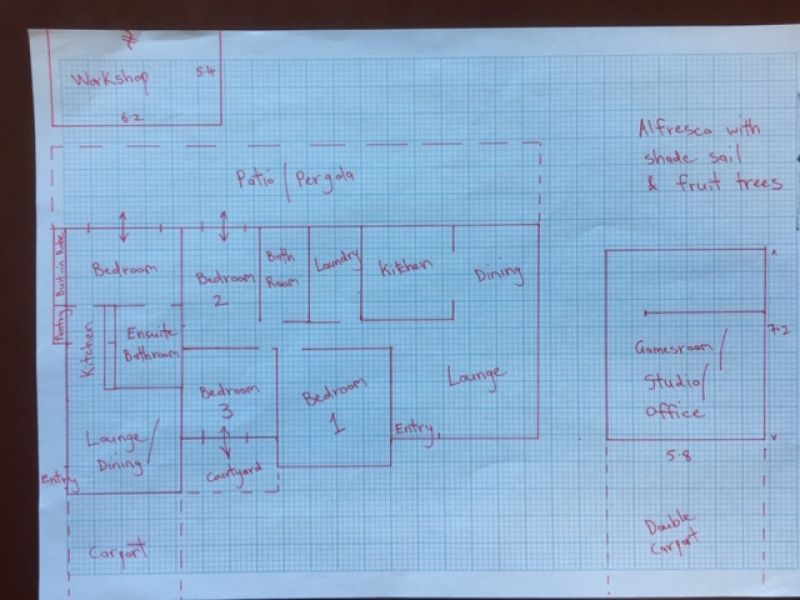 Workshop
5.4
6.2
Alfresco with
shade sail
& fruit trees
Patio / Pergola
Built-in Robe
Bedroom
Bedroom
2
Bath
Room
Laundry
Kitchen
Dining
Pantry
Kitchen
Ensuite
Bathroom
Bedroom
3
Bedroom
1
Lounge
Entry
Lounge /
Dining
Entry
Courtyard
Carport
Gamesroom /
Studio /
Office
7.2
5.8
Double
Carport